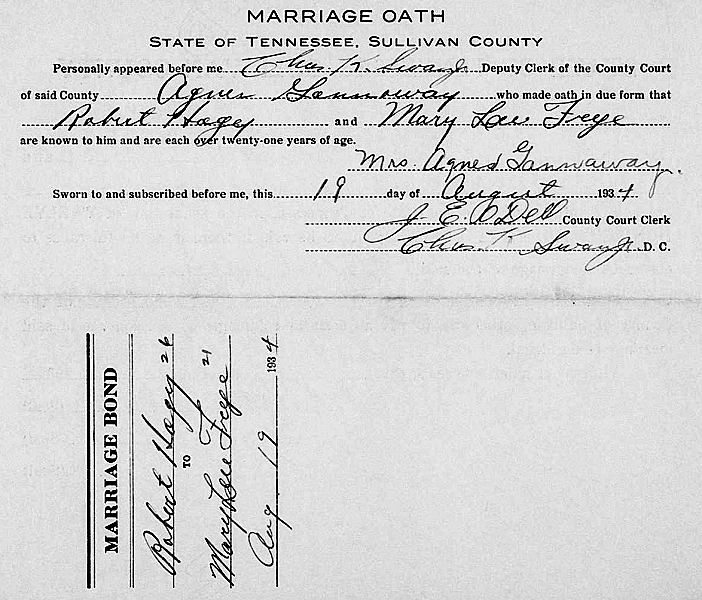 MARRIAGE OATH
STATE OF TENNESSEE, SULLIVAN COUNTY
Personally appeared before me Chas. K. Swan Jr. Deputy Clerk of the County Court
of said County Agnes Gannaway who made oath in due form that
Robert Hagy and Mary Lew Frye
are known to him and are each over twenty-one years of age.
Mrs. Agnes Gannaway.
Sworn to and subscribed before me, this 19 day of August 1934
J. E. O'Dell County Court Clerk
Chas. K. Swan Jr. D. C.
MARRIAGE BOND
Robert Hagy 26
TO
Mary Lew Frye 21
Aug 19 1934